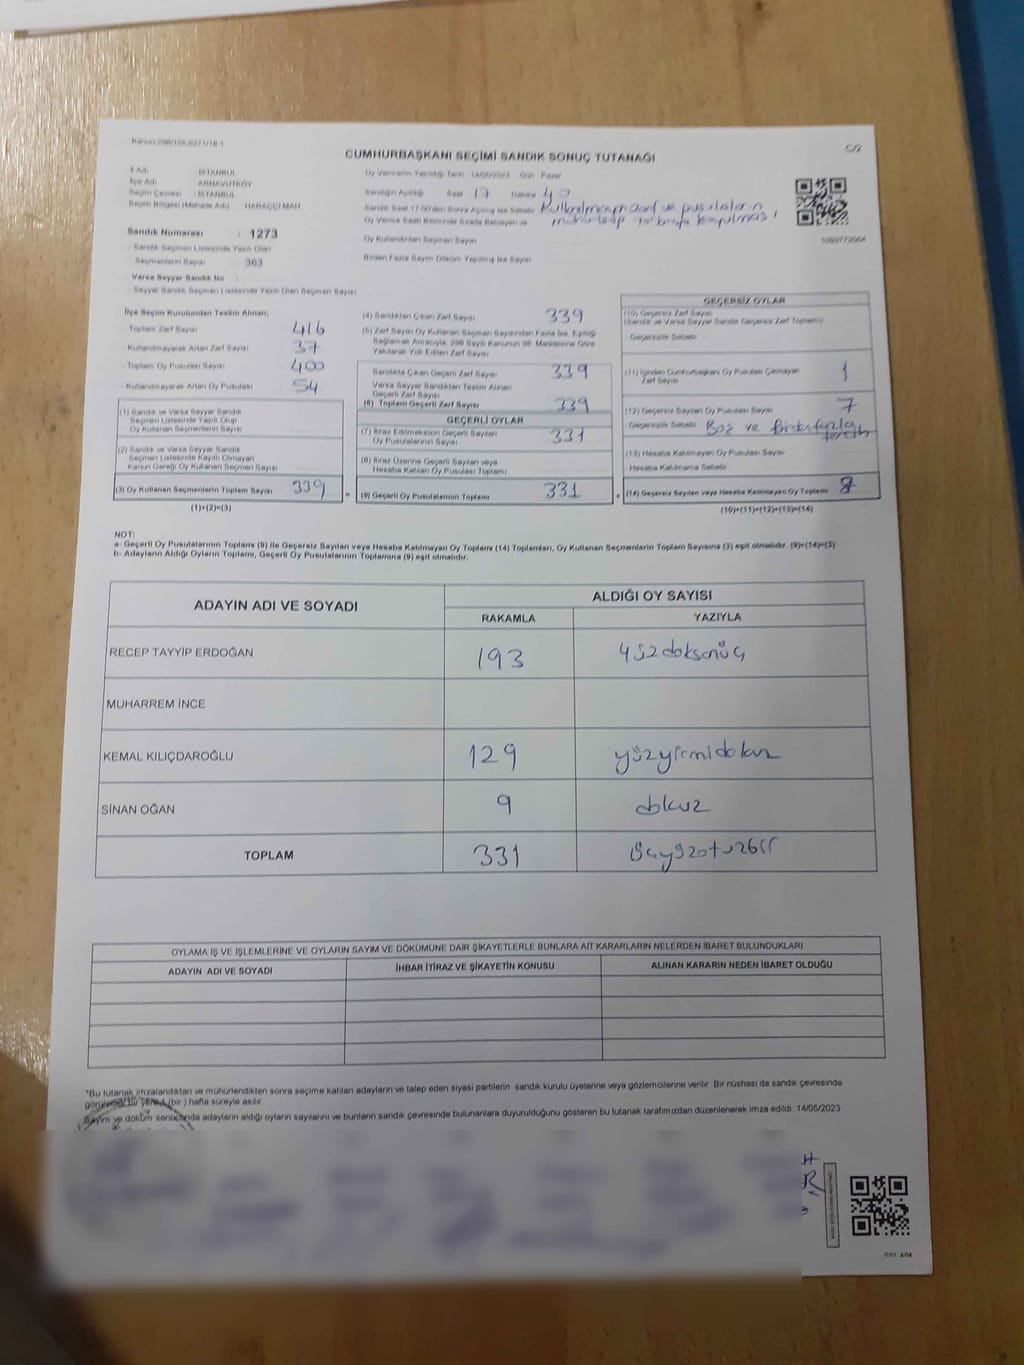 Kanun:298/105,6271/18-1
C/2
CUMHURBAŞKANI SEÇİMİ SANDIK SONUÇ TUTANAĞI
İl Adı : İSTANBUL
İlçe Adı : ARNAVUTKÖY
Seçim Çevresi : İSTANBUL
Seçim Bölgesi (Mahalle Adı) : HARAÇÇI MAH.
Oy Vermenin Yapıldığı Tarih 14/05/2023 Gün Pazar
Sandığın Açıldığı Saat 17 Dakika
Sandık Saat 17.00'den Sonra Açılmış İse Sebebi Kullanılmayan zarf ve pusulaların
Oy Verme Saati Bitiminde Sırada Bekleyen ve mühürlenip torbaya kapılması
Oy Kullandırılan Seçmen Sayısı
Birden Fazla Sayım Döküm Yapılmış İse Sayısı
1093772564
Sandık Numarası : 1273
Sandık Seçmen Listesinde Yazılı Olan
Seçmenlerin Sayısı : 363
Varsa Seyyar Sandık No :
Seyyar Sandık Seçmen Listesinde Yazılı Olan Seçmen Sayısı :
İlçe Seçim Kurulundan Teslim Alınan;
- Toplam Zarf Sayısı 416
- Kullanılmayarak Artan Zarf Sayısı 37
- Toplam Oy Pusulası Sayısı 400
- Kullanılmayarak Artan Oy Pusulası 54
(1) Sandık ve Varsa Seyyar Sandık
Seçmen Listesinde Yazılı Olup
Oy Kullanan Seçmenlerin Sayısı
(2) Sandık ve Varsa Seyyar Sandık
Seçmen Listesinde Kayıtlı Olmayan
Kanun Gereği Oy Kullanan Seçmen Sayısı
(3) Oy Kullanan Seçmenlerin Toplam Sayısı 339
(1)+(2)=(3)
(4) Sandıktan Çıkan Zarf Sayısı 339
(5) Zarf Sayısı Oy Kullanan Seçmen Sayısından Fazla İse, Eşitliği
Sağlamak Amacıyla, 298 Sayılı Kanunun 98. Maddesine Göre
Yakılarak Yok Edilen Zarf Sayısı
Sandıkta Çıkan Geçerli Zarf Sayısı 339
Varsa Seyyar Sandıktan Teslim Alınan
Geçerli Zarf Sayısı
(6) Toplam Geçerli Zarf Sayısı 339
GEÇERLİ OYLAR
(7) İtiraz Edilmeksizin Geçerli Sayılan
Oy Pusulalarının Sayısı 331
(8) İtiraz Üzerine Geçerli Sayılan veya
Hesaba Katılan Oy Pusulası Toplamı
= (9) Geçerli Oy Pusulalarının Toplamı 331
GEÇERSİZ OYLAR
(10) Geçersiz Zarf Sayısı
(Sandık ve Varsa Seyyar Sandık Geçersiz Zarf Toplamı)
- Geçersizlik Sebebi
(11) İçinden Cumhurbaşkanı Oy Pusulası Çıkmayan
Zarf Sayısı 1
(12) Geçersiz Sayılan Oy Pusulası Sayısı 7
- Geçersizlik Sebebi Boş ve Birden fazla
tercih
(13) Hesaba Katılmayan Oy Pusulası Sayısı
Hesaba Katılmama Sebebi
+ (14) Geçersiz Sayılan veya Hesaba Katılmayan Oy Toplamı 8
(10)+(11)+(12)+(13)=(14)
NOT:
a- Geçerli Oy Pusulalarının Toplamı (9) ile Geçersiz Sayılan veya Hesaba Katılmayan Oy Toplamı (14) Toplamları, Oy Kullanan Seçmenlerin Toplam Sayısına (3) eşit olmalıdır. (9)+(14)=(3)
b- Adayların Aldığı Oyların Toplamı, Geçerli Oy Pusulalarının Toplamına (9) eşit olmalıdır.
ADAYIN ADI VE SOYADI
ALDIĞI OY SAYISI
RAKAMLA YAZIYLA
RECEP TAYYİP ERDOĞAN 193 yüzdoksanüç
MUHARREM İNCE
KEMAL KILIÇDAROĞLU 129 yüzyirmidokuz
SİNAN OĞAN 9 dokuz
TOPLAM 331 üçyüzotuzbir
OYLAMA İŞ VE İŞLEMLERİNE VE OYLARIN SAYIM VE DÖKÜMÜNE DAİR ŞİKAYETLERLE BUNLARA AİT KARARLARIN NELERDEN İBARET BULUNDUKLARI
ADAYIN ADI VE SOYADI İHBAR İTİRAZ VE ŞİKAYETİN KONUSU ALINAN KARARIN NEDEN İBARET OLDUĞU
*Bu tutanak imzalandıktan ve mühürlendikten sonra seçime katılan adayların ve talep eden siyasi partilerin sandık kurulu üyelerine veya gözlemcilerine verilir. Bir nüshası da sandık çevresinde
görülecek bir yere 1 (bir ) hafta süreyle asılır.
Sayım ve döküm sonucunda adayların aldığı oyların sayılarını ve bunların sandık çevresinde bulunanlara duyurulduğunu gösteren bu tutanak tarafımızdan düzenlenerek imza edildi. 14/05/2023